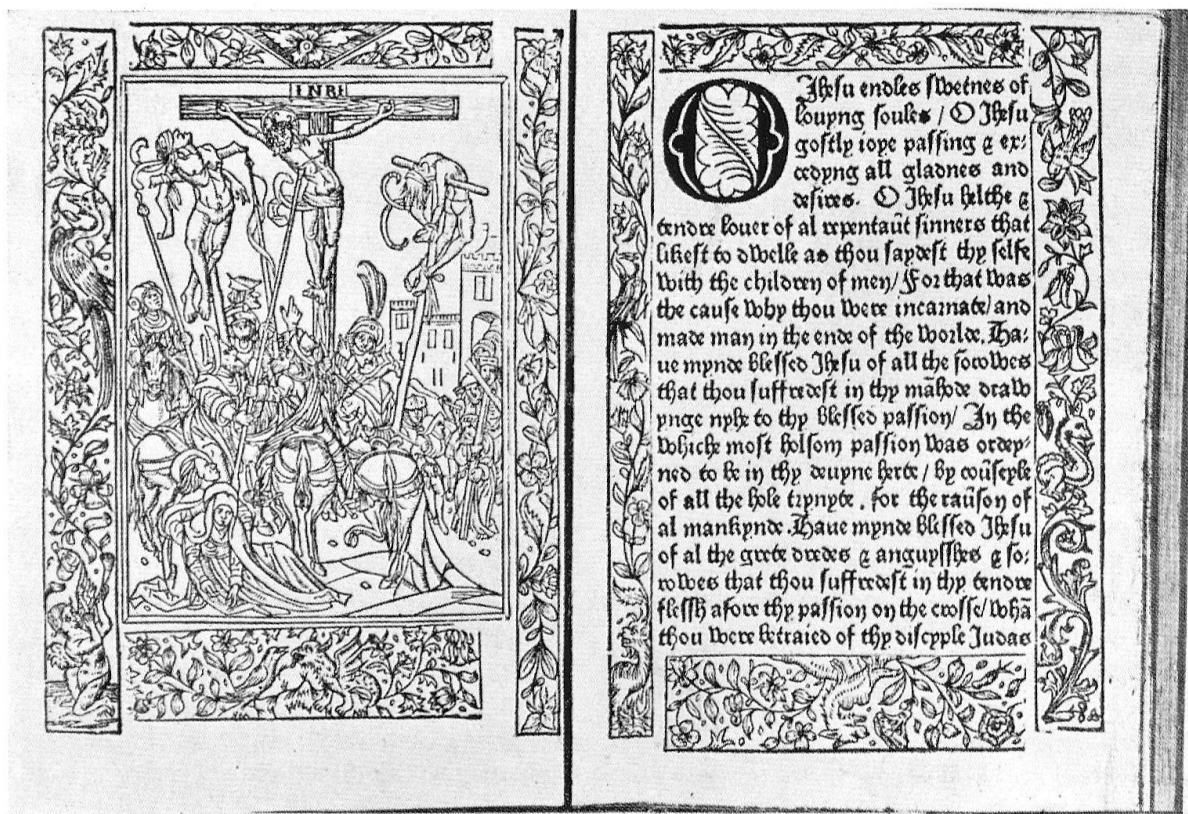 INRI
O Jhesu endles swetnes of
louyng soules / O Jhesu
gostly ioye passing & ex:
cedyng all gladnes and
desires. O Jhesu helthe &
tendre louer of al repentaūt sinners that
likest to dwelle as thou saydest thy selfe
with the children of men / For that was
the cause why thou were incarnate / and
made man in the ende of the worlde. Ha-
ue mynde blessed Jhesu of all the sorowes
that thou suffredest in thy māhode draw
ynge nyhe to thy blessed passion / In the
whiche most holsom passion was ordey-
ned to be in thy deuyne herte / by coūseyle
of all the hole trynyte . for the raūson of
al mankynde. Haue mynde blessed Jhesu
of al the grete dredes & anguysshes & so:
rowes that thou suffredest in thy tendre
flessh afore thy passion on the crosse / whā
thou were betraied of thy discyple Judas